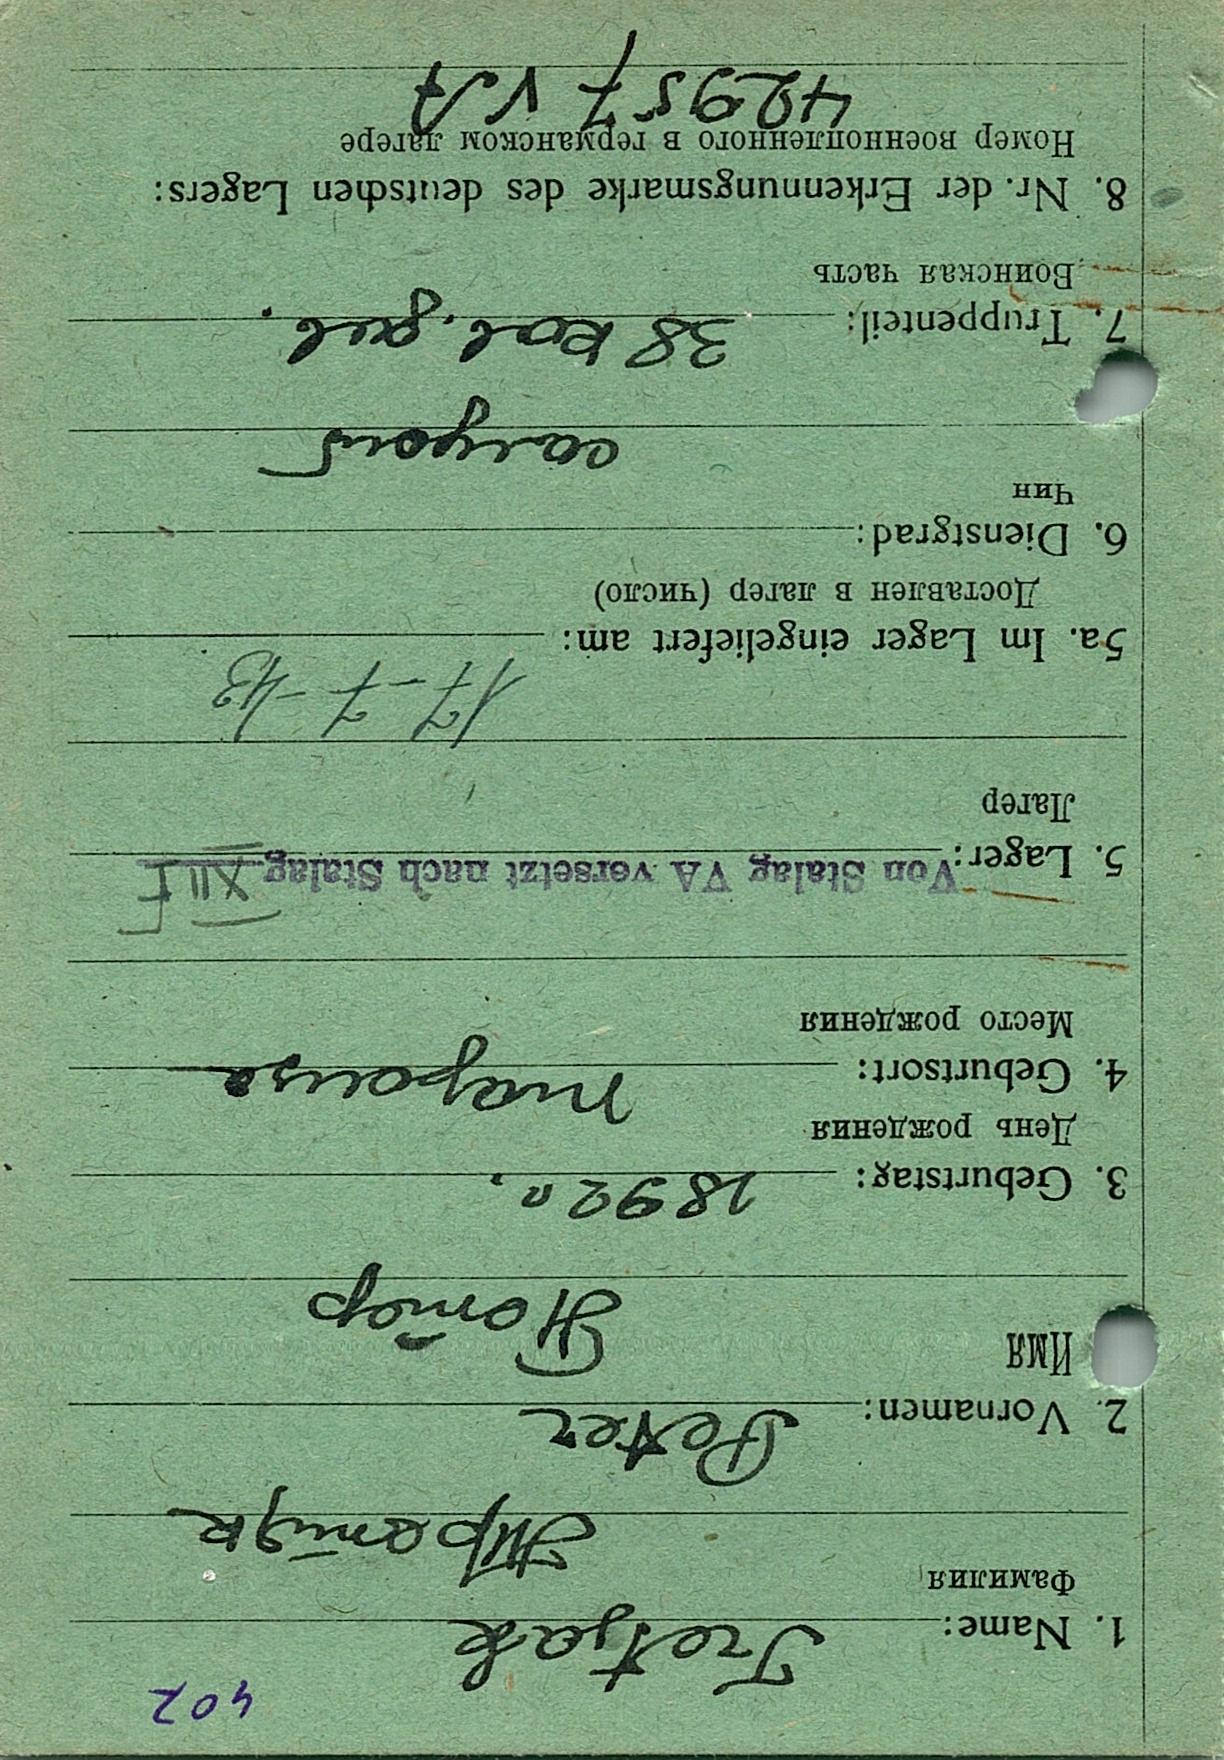 402
1. Name: Tretjak
Фамилия Третяк
2. Vornamen: Peter
Имя Пётор
3. Geburtstag: 1892 г.
День рождения
4. Geburtsort:
Место рождения
5. Lager: Von Stalag VA versetzt nach Stalag XII F
Лагер
5a. Im Lager eingeliefert am: 17-7-43
Доставлен в лагер (число)
6. Dienstgrad:
Чин
7. Truppenteil: 38
Воинская часть
8. Nr. der Erkennungsmarke des deutschen Lagers:
Номер военнопленного в германском лагере
42957 VA